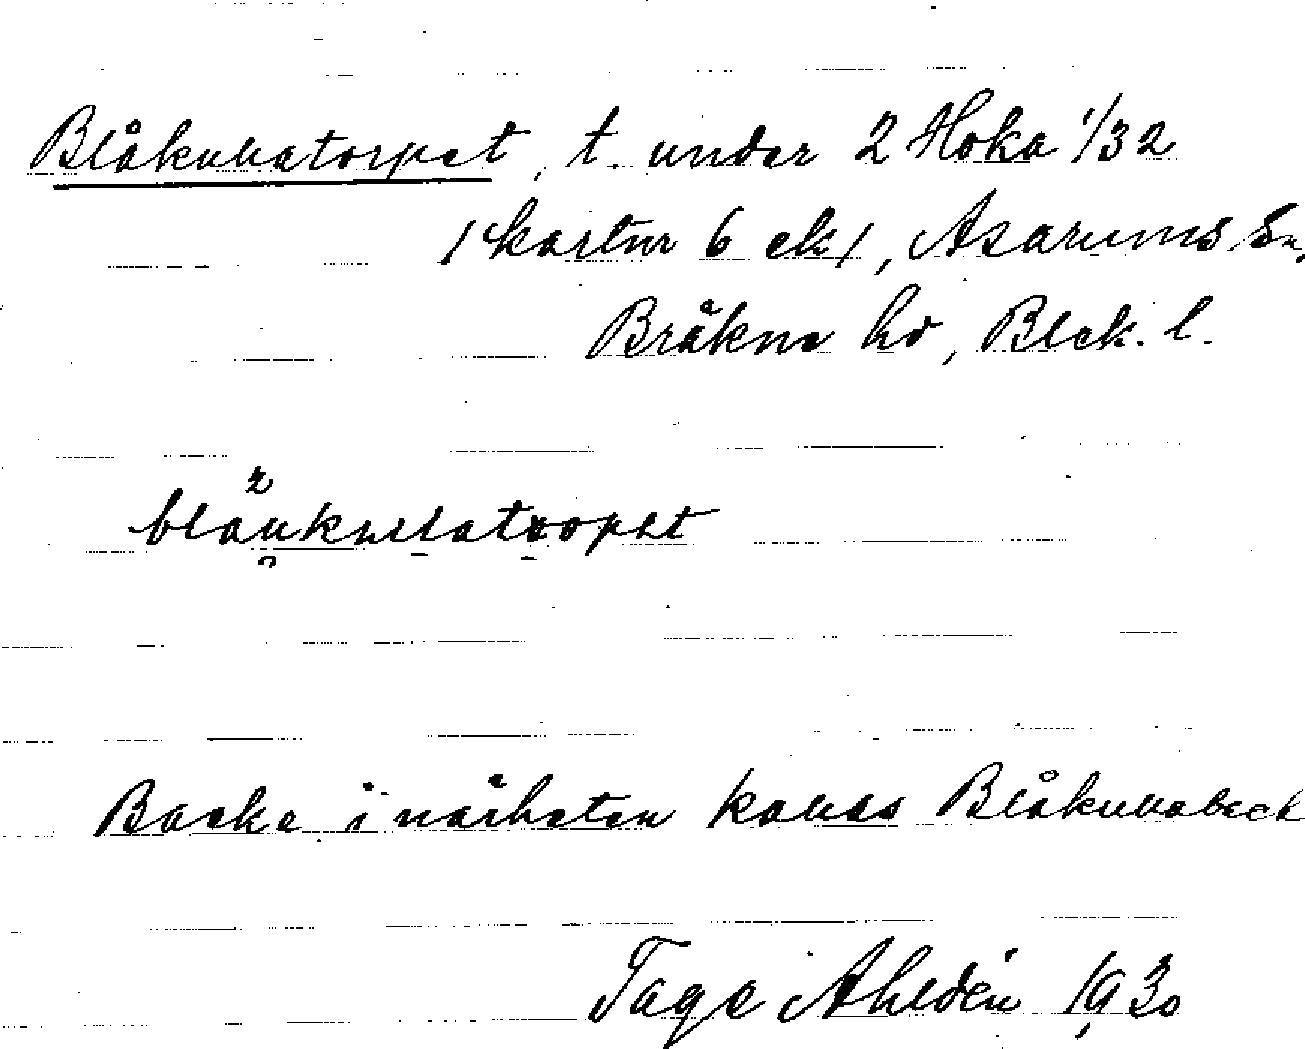 Blåkullatorpet, t. under 2 Hoka 1/32
/kartur 6 ek/, Asarums sn,
Bräkne hd, Blek. l.
Backe i närheten kallas Blåkullaback
Tage Ahldén 1930